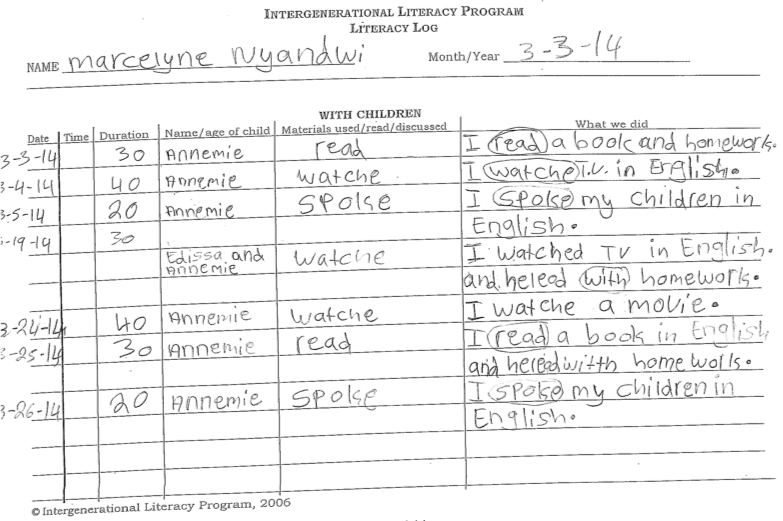 INTERGENERATIONAL LITERACY PROGRAM
LITERACY LOG
NAME marcelyne Nyandwi Month/Year 3-3-14
WITH CHILDREN
Date Time Duration Name/age of child Materials used/read/discussed What we did
3-3-14 30 Annemie read I read a book and homework.
3-4-14 40 Annemie watche I watche T.V. in English.
3-5-14 20 Annemie Spoke I Spoke my children in
English.
-19-14 30
Edissa and Annemie watche I watched TV in English.
and heleed with homework.
3-24-14 40 Annemie watche I watche a movie.
3-25-14 30 Annemie read I read a book in English
and heleed witth home work.
3-26-14 20 Annemie Spoke I spoke my children in
English.
© Intergenerational Literacy Program, 2006